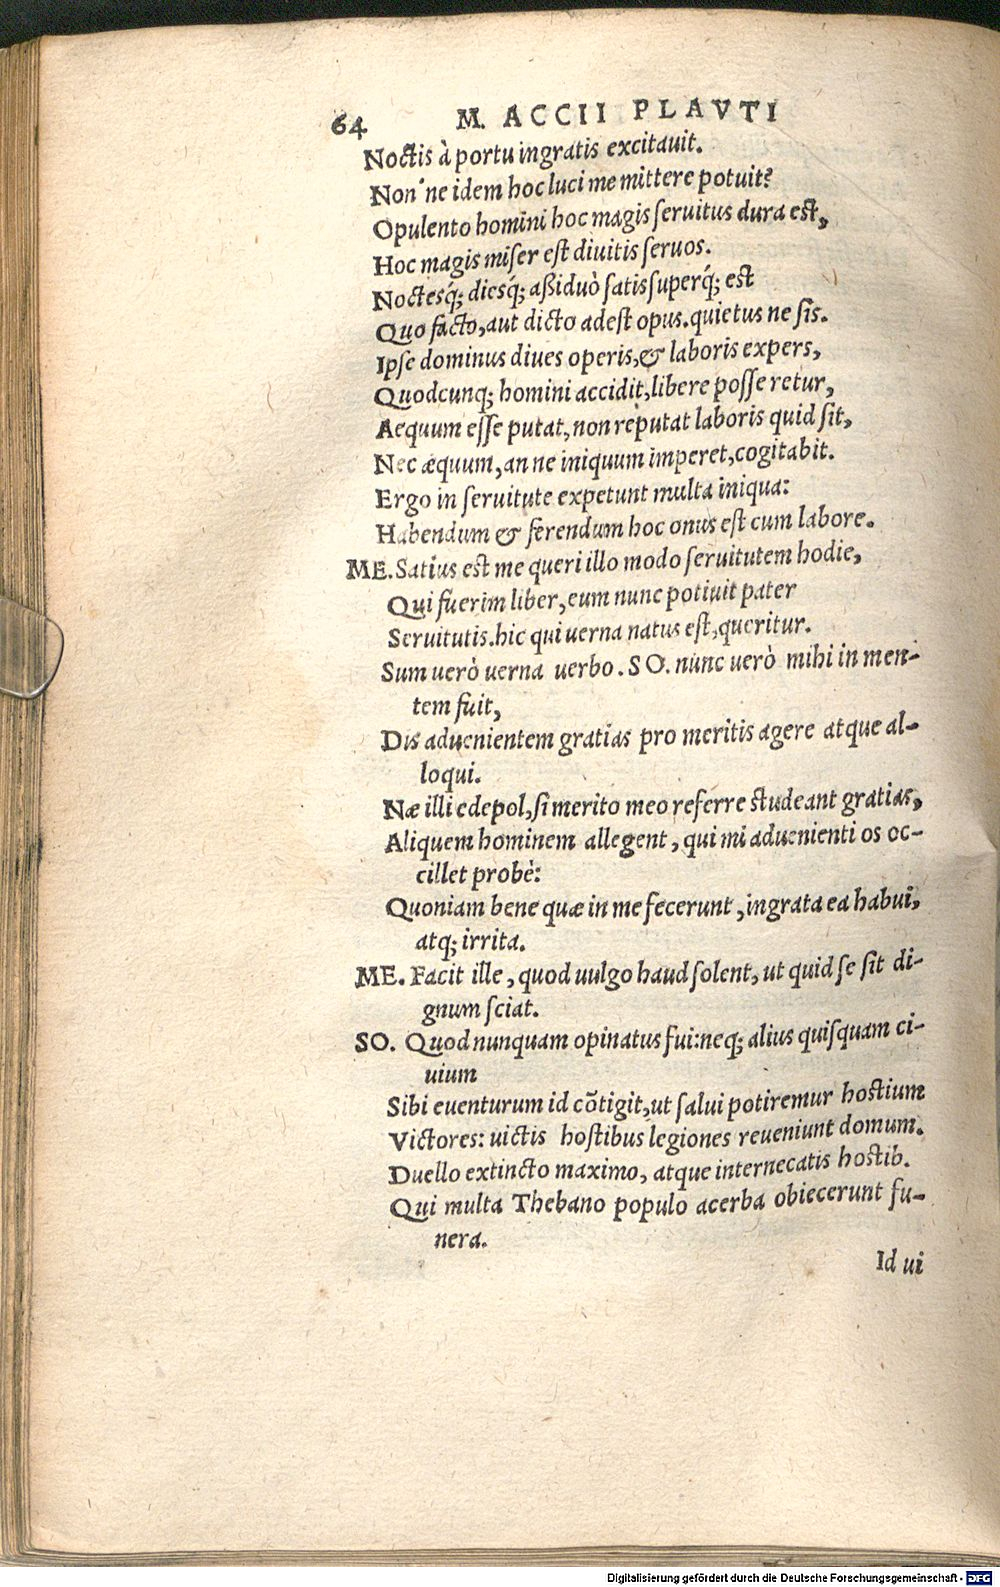 64 M. ACCII PLAVTI
Noctis à portu ingratis excitauit.
Non'ne idem hoc luci me mittere potuit?
Opulento homini hoc magis ſeruitus dura eſt,
Hoc magis miſer eſt diuitis ſeruos.
Noctesq́; diesq́; aßiduò ſatis ſuperq́; eſt
Quo facto, aut dicto adeſt opus. quietus ne ſis.
Ipſe dominus diues operis, & laboris expers,
Quodcunq; homini accidit, libere poſſe retur,
Aequum eſſe putat, non reputat laboris quid ſit,
Nec æquum, an ne iniquum imperet, cogitabit.
Ergo in ſeruitute expetunt multa iniqua:
Habendum & ferendum hoc onus eſt cum labore.
ME. Satius eſt me queri illo modo ſeruitutem hodie,
Qui fuerim liber, eum nunc potiuit pater
Seruitutis. hic qui uerna natus eſt, queritur.
Sum uerò uerna uerbo. SO. nunc uerò mihi in men-
tem fuit,
Dis aduenientem gratias pro meritis agere atque al-
loqui.
Næ illi edepol, ſi merito meo referre ſtudeant gratias,
Aliquem hominem allegent, qui mi aduenienti os oc-
cillet probè:
Quoniam bene quæ in me fecerunt, ingrata ea habui,
atq; irrita.
ME. Facit ille, quod uulgo haud ſolent, ut quid ſe ſit di-
gnum ſciat.
SO. Quod nunquam opinatus fui: neq; alius quiſquam ci-
uium
Sibi euenturum id cõtigit, ut ſalui potiremur hoſtium
Victores: uictis hoſtibus legiones reueniunt domum.
Duello extincto maximo, atque internecatis hoſtib.
Qui multa Thebano populo acerba obiecerunt fu-
nera.
Id ui
Digitalisierung gefördert durch die Deutsche Forschungsgemeinschaft - DFG